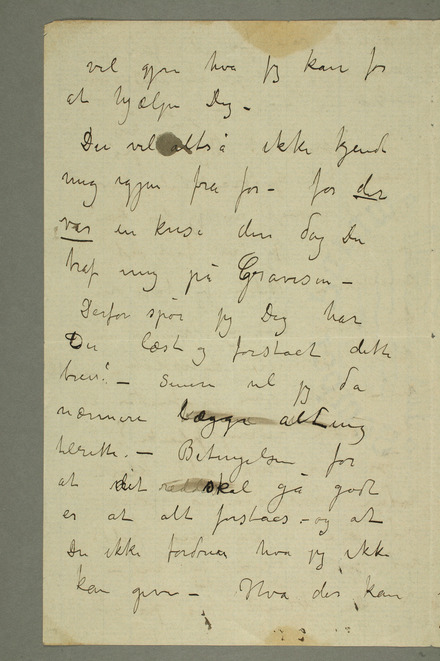 vil gjøre hva jeg kan for
at hjælpe Dig –
Du vil altså ikke kjende
mig igjen fra før – for der
var en krise den dag Du
traf mig på Gravesen –
Derfor spør jeg Dig har
Du læst og forstaet dette
brev? – Senere vil jeg da
nærmere lægge alting
tilrette. – Betingelsen for
at det skal gå godt
er at alt forstaes – og at
Du ikke fordrer hva jeg ikke
kan give – Hva der kan